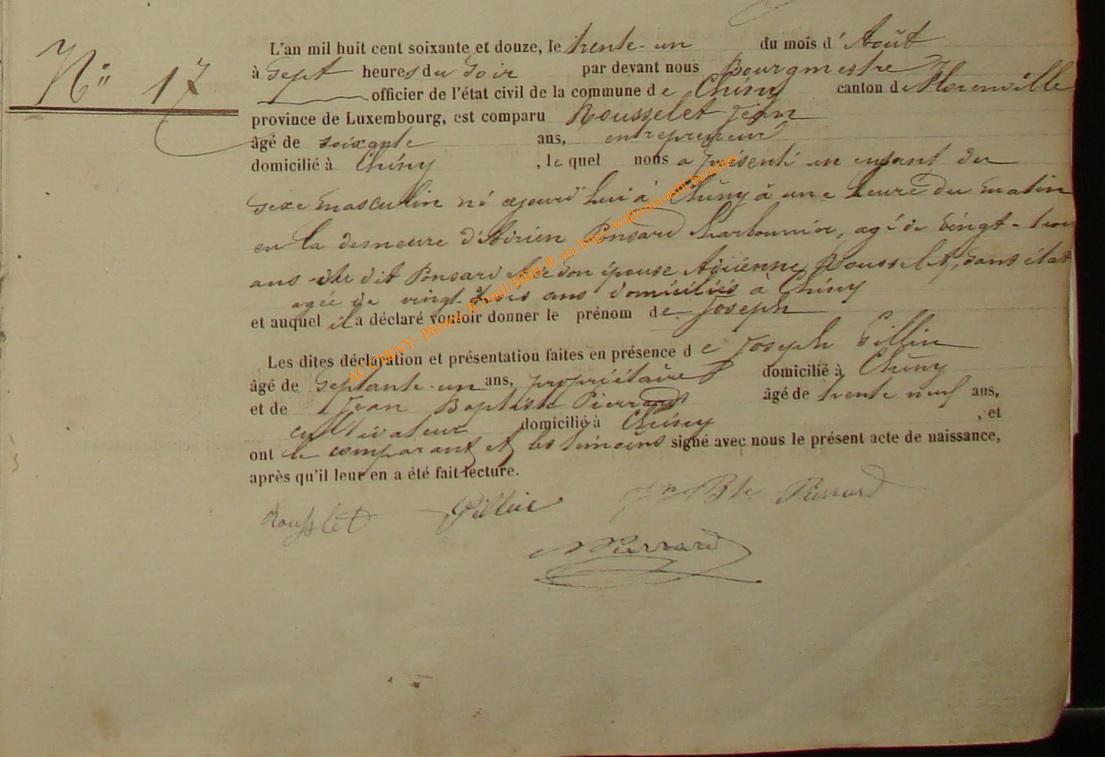 N° 17
L'an mil huit cent soixante et douze, le trente-un du mois d'Août
à Sept heures du Soir par devant nous Bourgmestre
officier de l'état civil de la commune de Chiny canton de Florenville
province de Luxembourg, est comparu Rousselet Jean
âgé de soixante ans, entrepreneur
domicilié à Chiny, lequel nous a présenté un enfant du
sexe masculin né aujourd'hui à Chiny à une heure du matin
en la demeure d'Adrien Ponsard charbonnier, agé de vingt-trois
ans dit Ponsard et de son épouse Adrienne Rousselet, sans état
agée de vingt-trois ans domiciliés à Chiny
et auquel il a déclaré vouloir donner le prénom de Joseph
Les dites déclaration et présentation faites en présence de Joseph Gillin
âgé de Septante-un ans, propriétaire domicilié à Chiny
et de Jean Baptiste Pierrard âgé de trente neuf ans,
cultivateur domicilié à Chiny, et
ont le comparant et les témoins signé avec nous le présent acte de naissance,
après qu'il leur en a été fait lecture.
Rousslet Gillin Jn Bte Pierrard
Pierrard